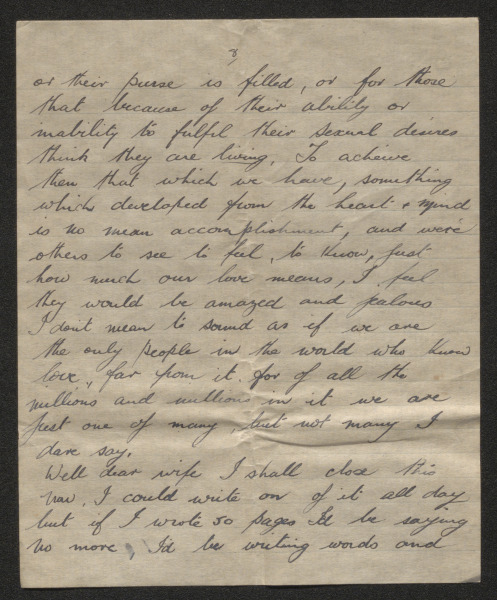 8
or their purse is filled, or for those
that because of their ability or
inability to fulfil their sexual desires
think they are living. To achieve
then that which we have, something
which developed from the heart & mind
is no mean accomplishment, and were
others to see to feel, to know, just
how much our love means, I feel
they would be amazed and jealous
I don't mean to sound as if we are
the only people in the world who know
love, far from it, for of all the
millions and millions in it we are
just one of many, but not many I
dare say.
Well dear wife I shall close this
now. I could write on of it all day
but if I wrote 50 pages I'd be saying
no more, I'd be writing words and